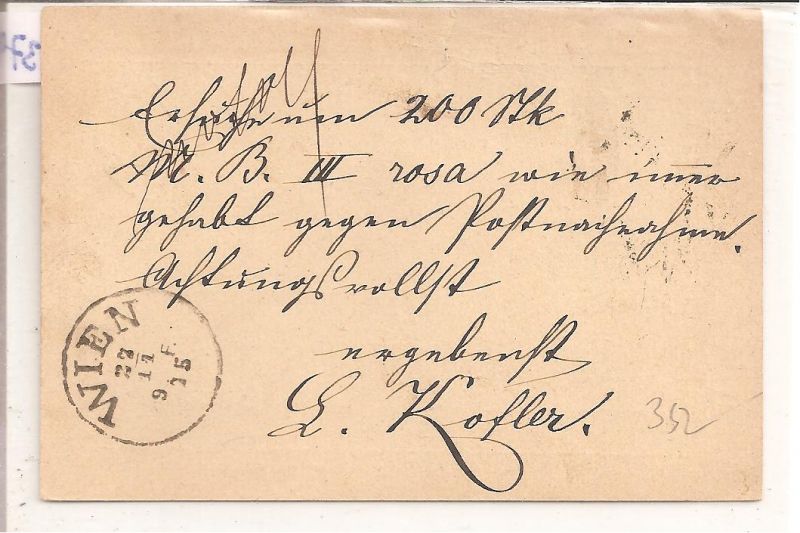 Ersuche um 200 Stk
M. B. III rosa wie immer
gehabt gegen Postnachnahme.
Achtungsvollst
ergebenst
L. Kofler.
WIEN
22
11
9 F
15
352